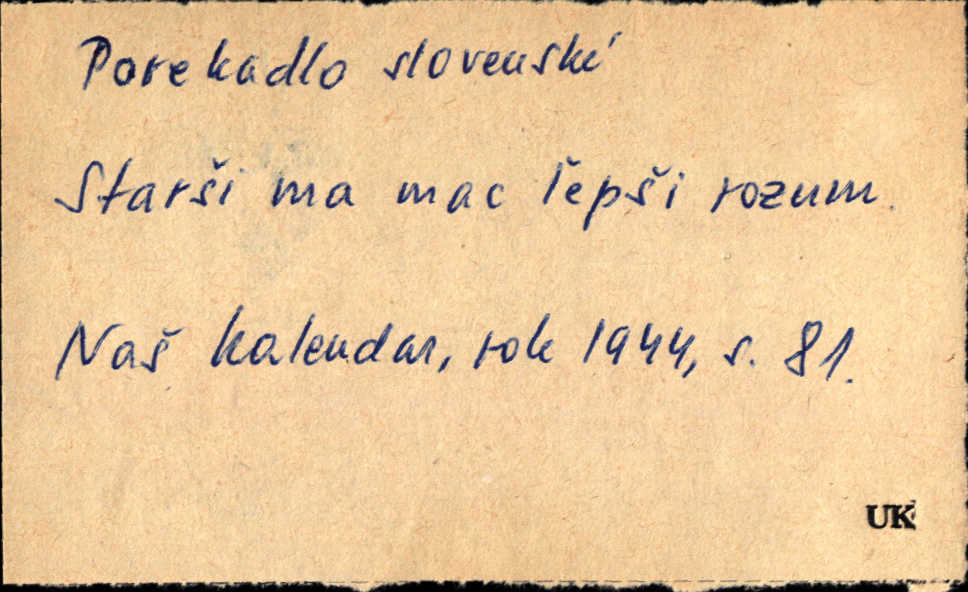 Porekadlo slovenské
Starši ma mac ľepši rozum.
Naš kalendar, rok 1944, s. 81.
UK